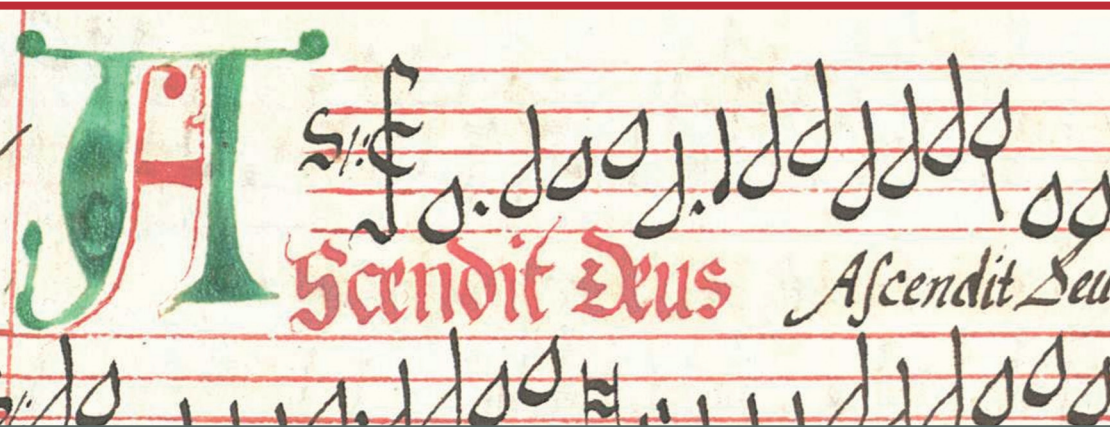 AScendit Deus Aſcendit Deu